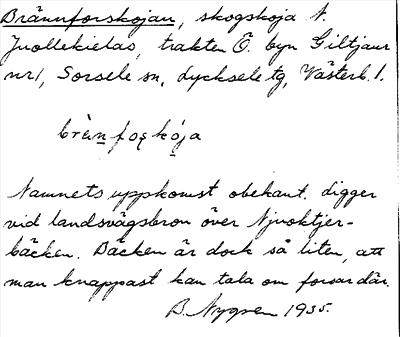 Brännforskojan, skogskoja N.
Juollekielas, trakten Ö. byn Giltjaur
nr 1, Sorsele sn, Lycksele tg, Västerb. l.
brä̀n foʂkó̱ja
Namnets uppkomst obekant. Ligger
vid landsvägsbron över Njuoktjer-
bäcken. Bäcken är dock så liten, att
man knappast kan tala om forsar där.
B. Nygren 1935.